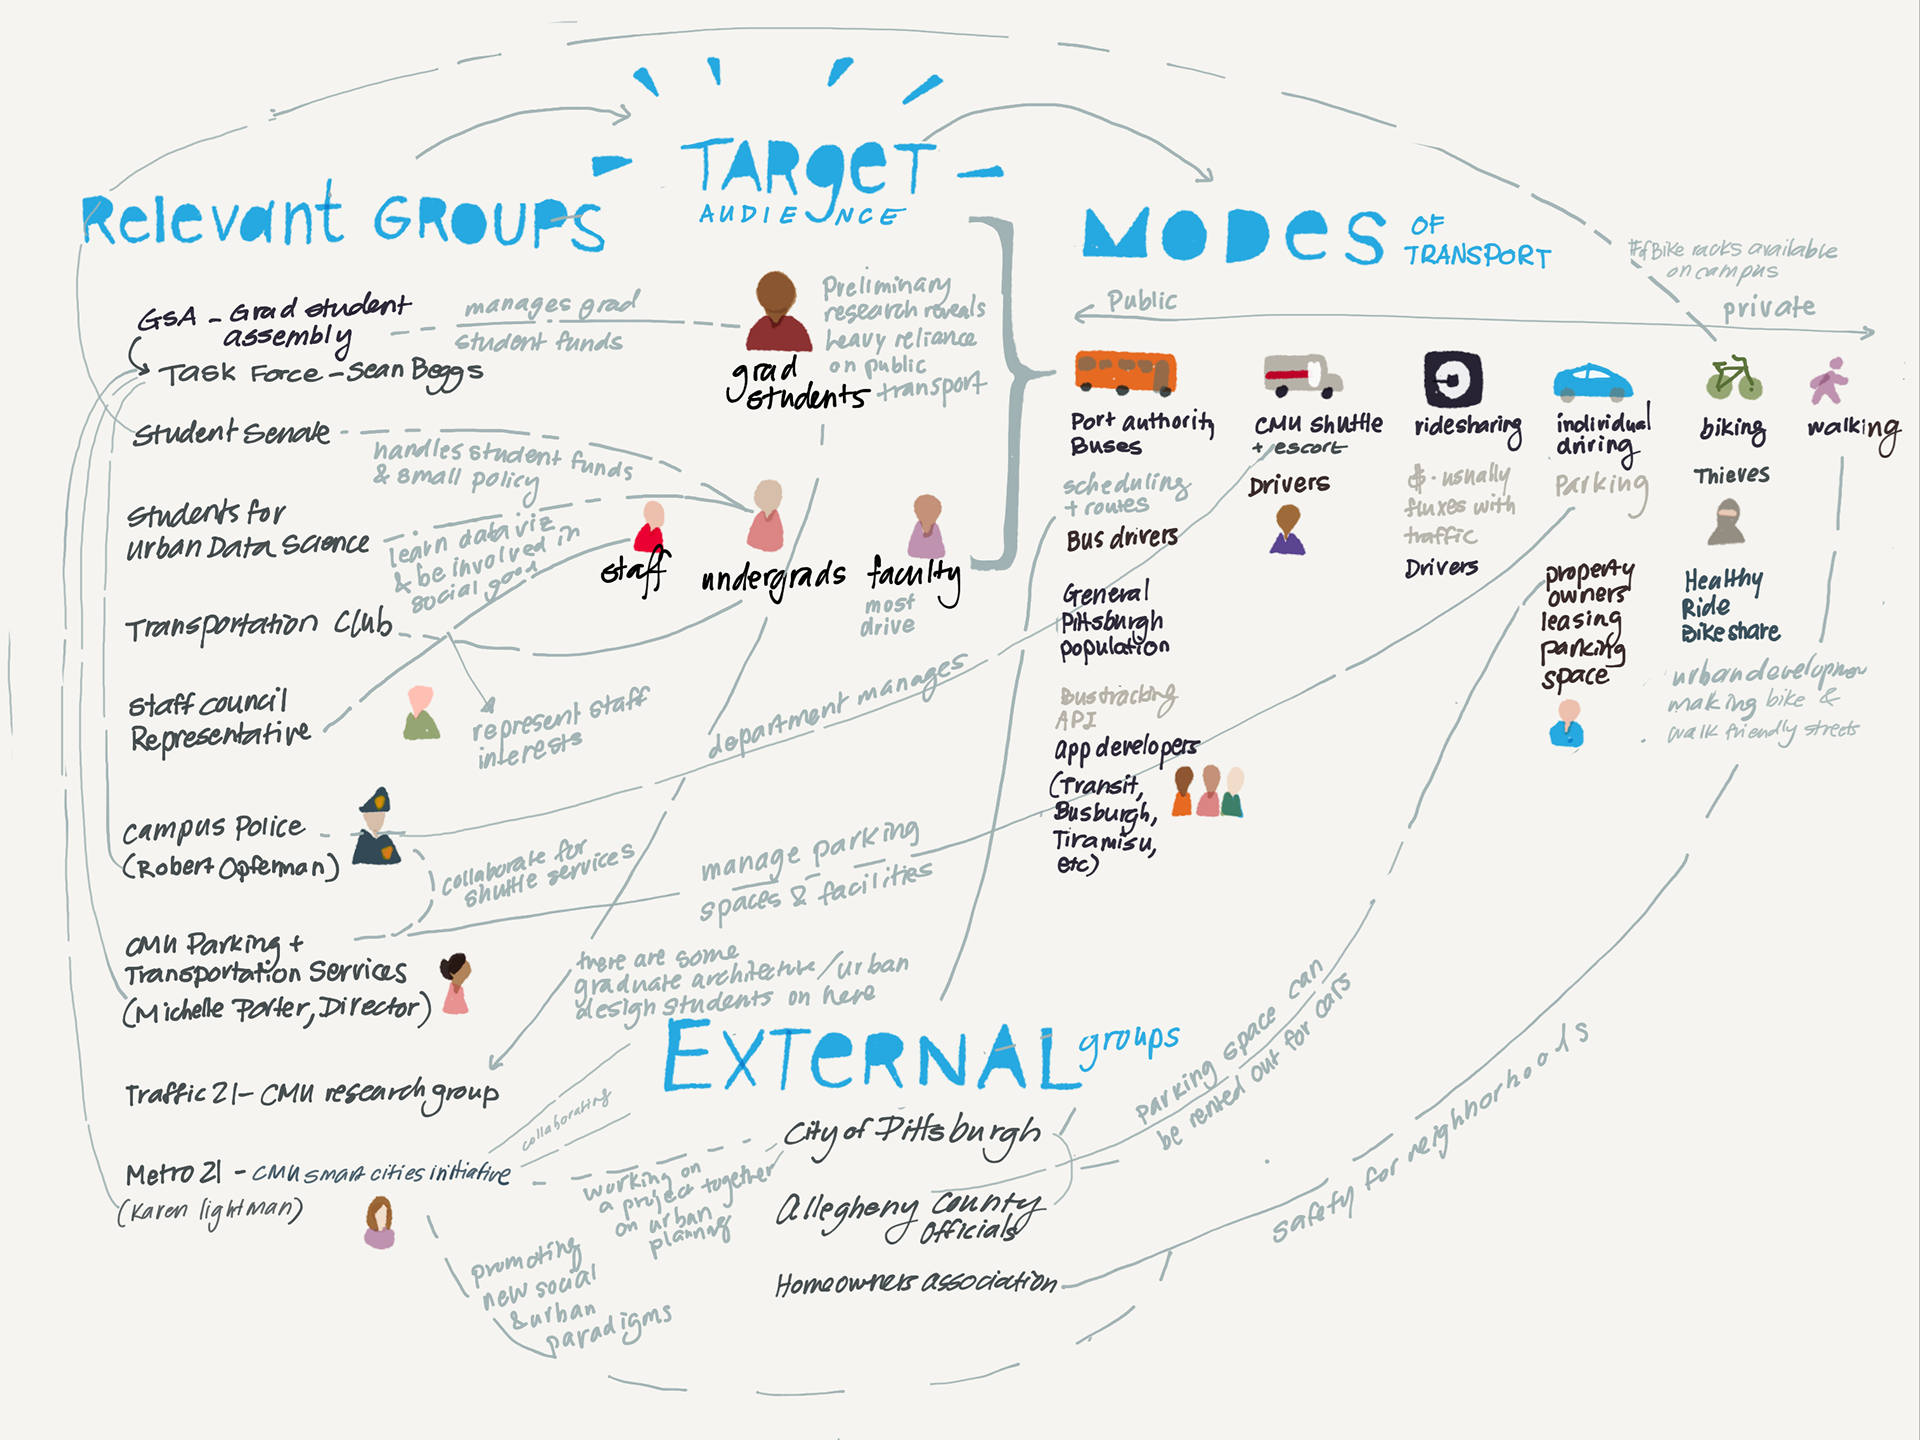 TARget
AUDIENCE
Relevant GROUPS
GSA - Grad student
assembly
Task Force - Sean Beggs
manages grad
student funds
Student Senate
handles student funds
& small policy
Students for
urban Data Science
learn data viz
& be involved in
social good
Transportation Club
Staff council
Representative
represent staff
interests
Campus Police
(Robert Opferman)
collaborate for
shuttle services
CMU Parking +
Transportation Services
(Michelle Porter, Director)
Traffic 21 - CMU research group
Metro 21 - CMU smart cities initiative
(Karen lightman)
promoting
new social
& urban
paradigms
grad
students
Preliminary
research reveals
heavy reliance
on public
transport
staff
undergrads
faculty
most
drive
department manages
manage parking
spaces & facilities
there are some
graduate architecture/urban
design students on here
collaborating
working on
a project together
on urban
planning
EXTERNAL groups
City of Pittsburgh
Allegheny County
Officials
Homeowners association
MODes OF
TRANSPORT
#of Bike racks available
on campus
Public
private
Port authority
Buses
scheduling
+ routes
Bus drivers
General
Pittsburgh
population
Bustracking
API
app developers
(Transit,
Busburgh,
Tiramisu,
etc)
CMU shuttle
+ escort
Drivers
ridesharing
$ - usually
fluxes with
traffic
Drivers
individual
driving
Parking
property
owners
leasing
parking
space
biking
Thieves
Healthy
Ride
Bikeshare
walking
making bike &
walk friendly streets
parking space can
be rented out for cars
safety for neighborhoods